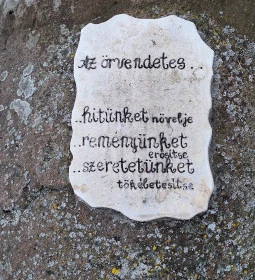 Az örvendetes...
..hitünket növelje
..reményünket
erősítse
..szeretetünket
tökéletesítse